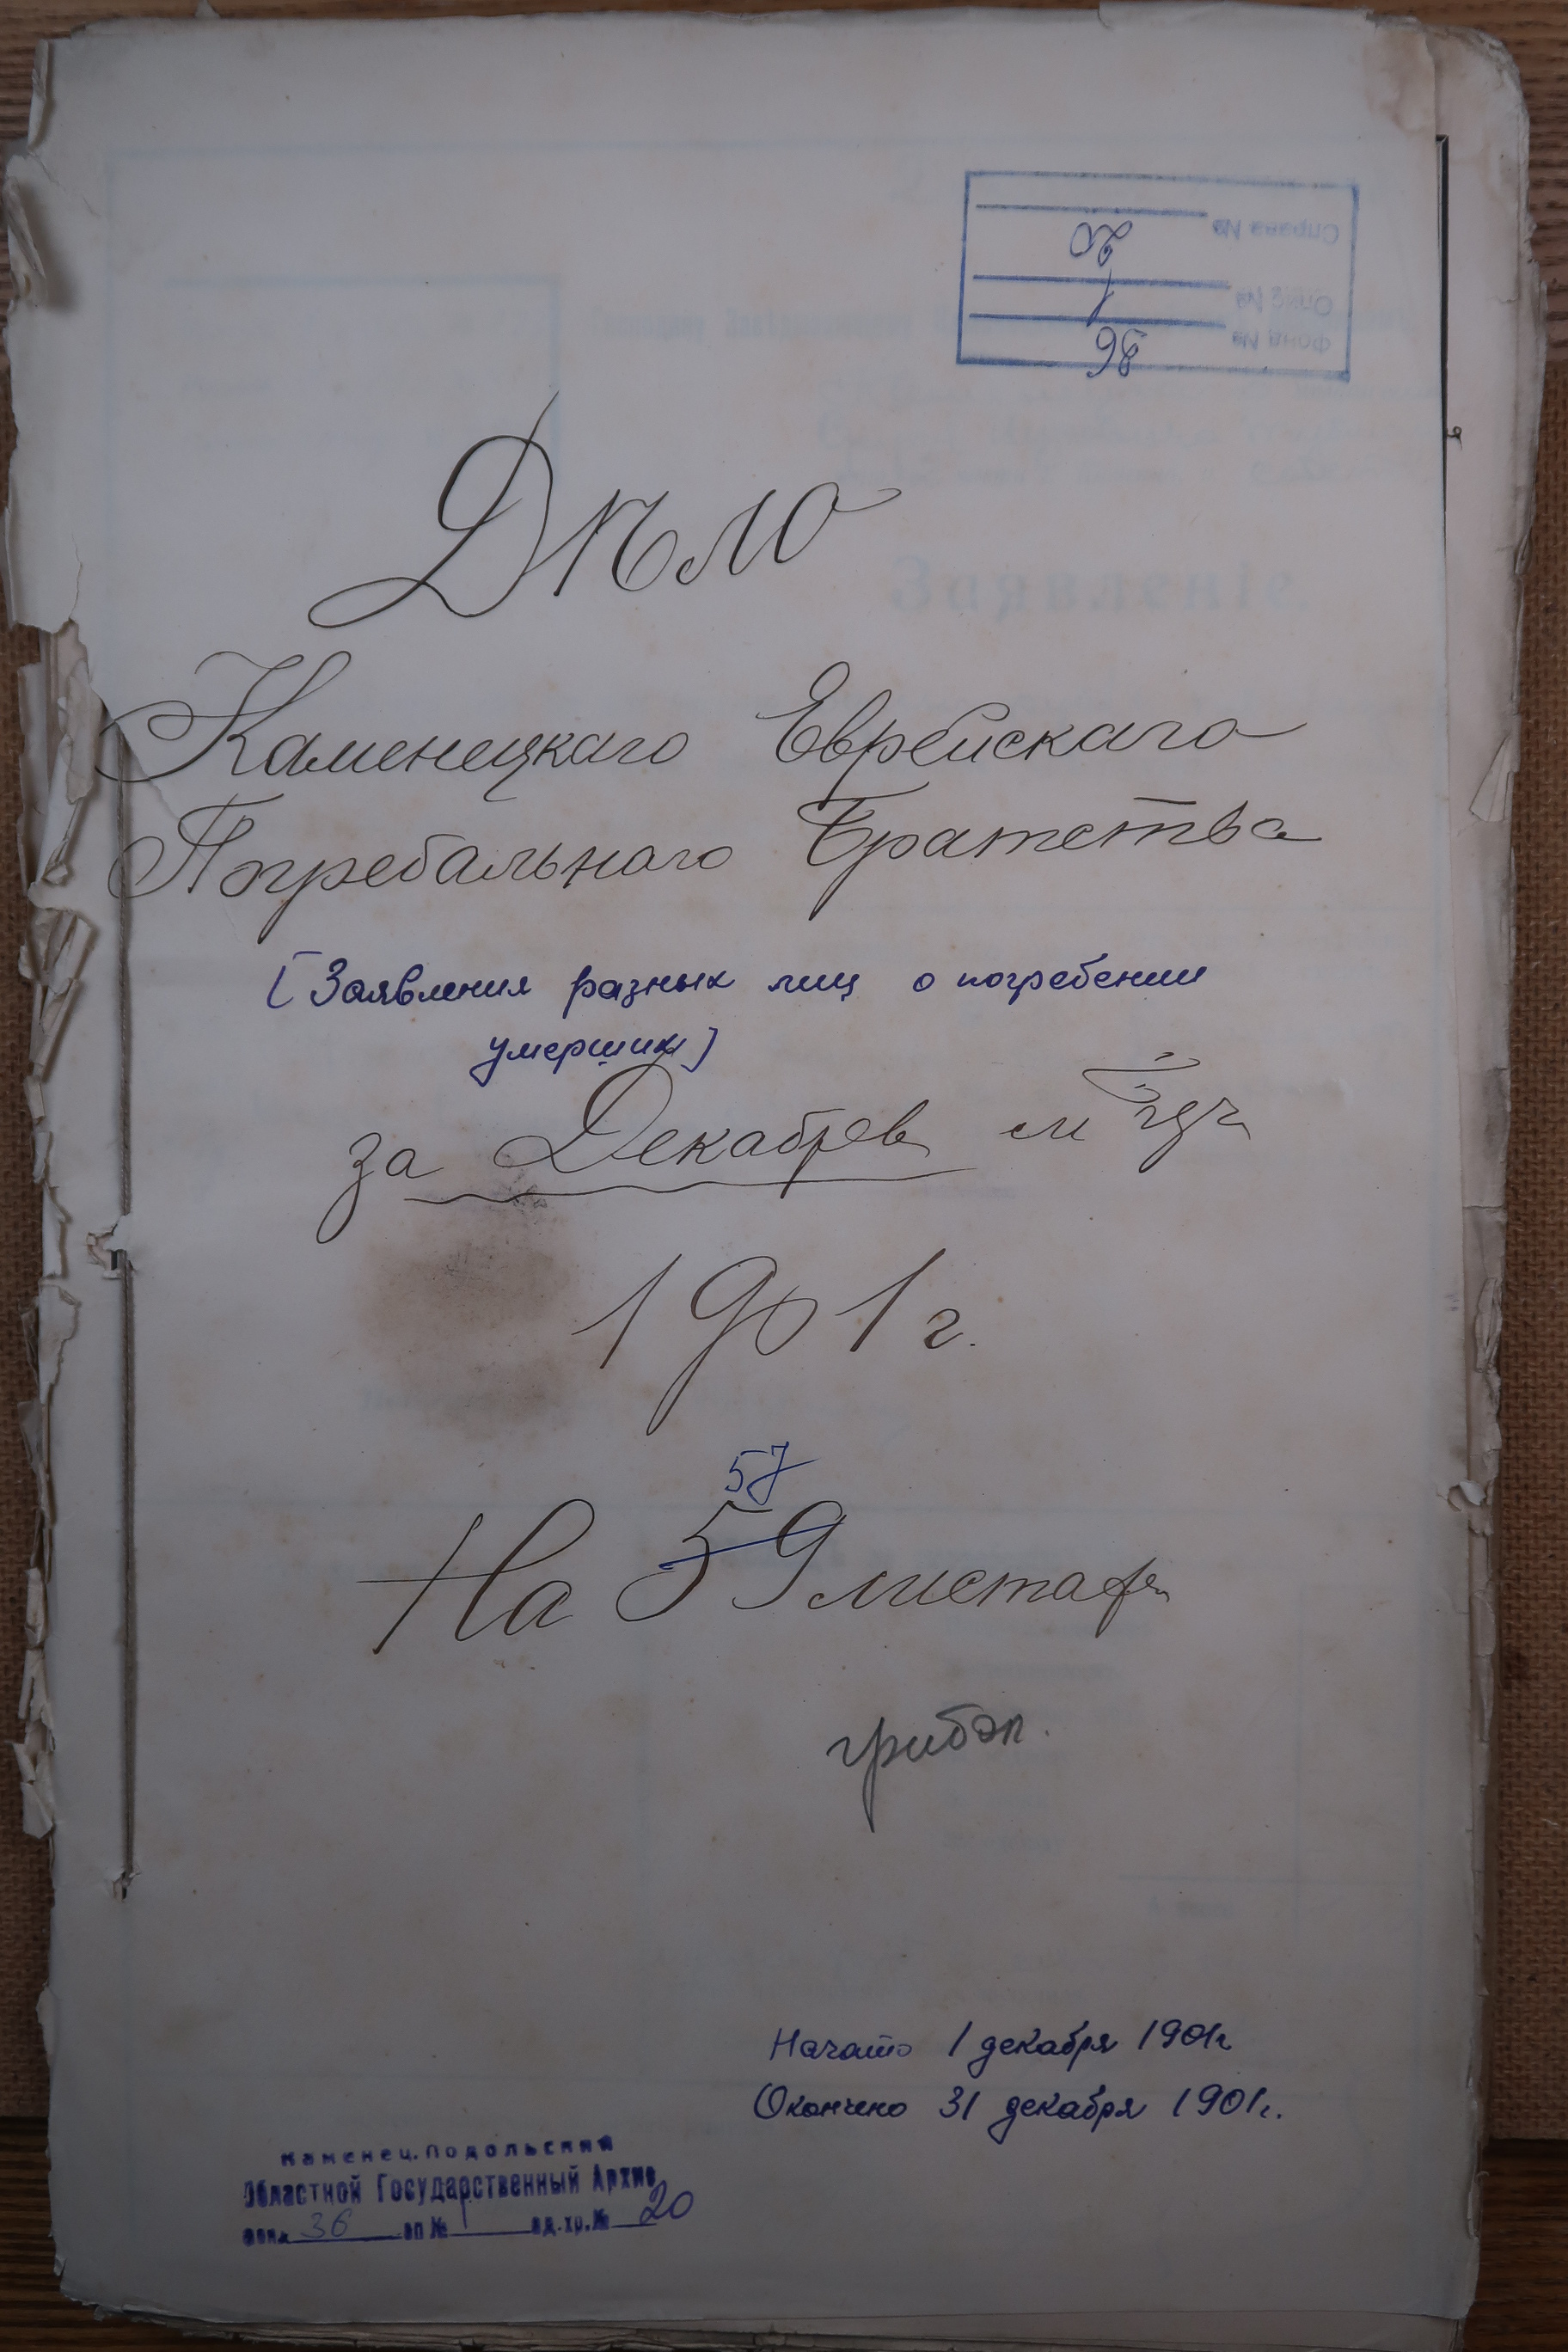 Справа №
20
Опис №
1
Фонд №
36
Заявленіе.
Дѣло
Каменецкаго Еврейскаго
Погребальнаго Братства
[Заявления разных лиц о погребении
умерших]
за Декабрь м
1901 г.
57
На 59 листахъ
Начато 1 декабря 1901г
Окончено 31 декабря 1901г.
Каменец.Подольский
Областной Государственный Архив
фонд 36 оп № 1 ед.хр.№ 20